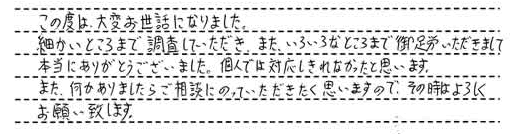 この度は、大変お世話になりました。
細かいところまで調査していただき、また、いろいろなところまで御足労いただきまして
本当にありがとうございました。個人では対応しきれなかったと思います。
また、何かありましたらご相談にのっていただきたく思いますので、その時はよろしく
お願い致します。